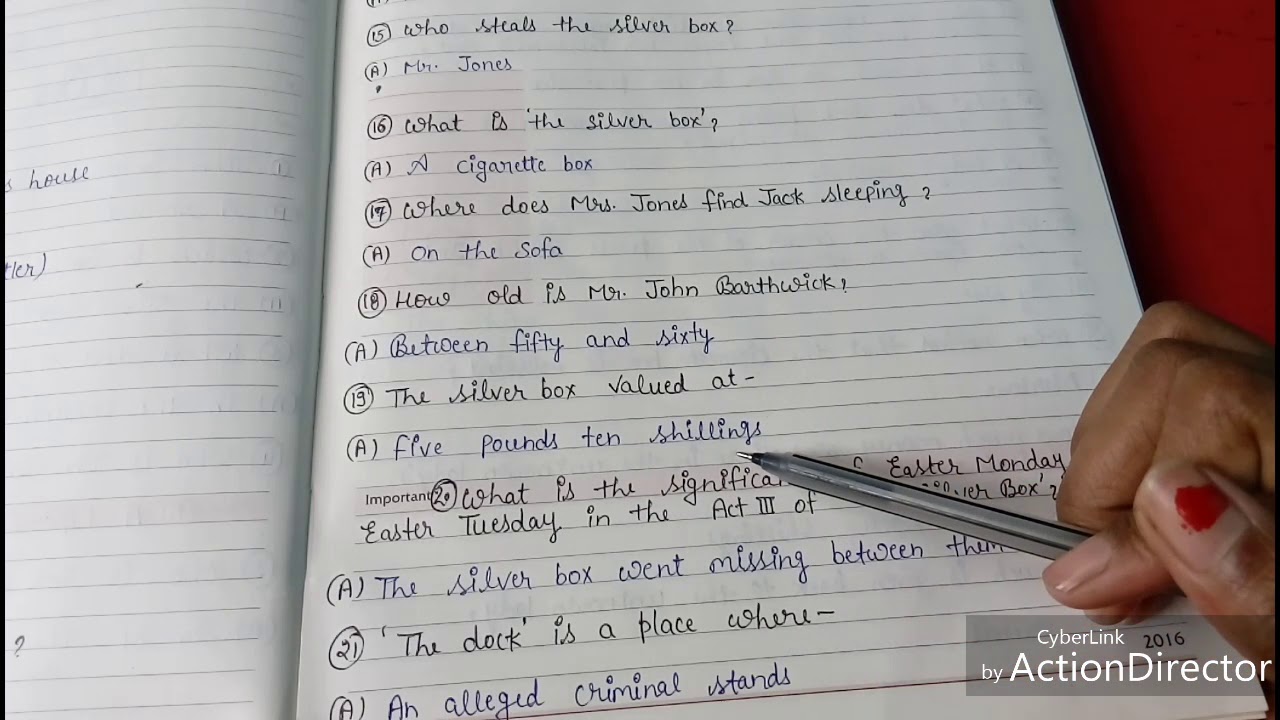 s house
tler)
?
(15) Who steals the silver box?
(A) Mr. Jones
(16) What is 'the silver box'?
(A) A cigarette box
(17) Where does Mrs. Jones find Jack sleeping?
(A) On the Sofa
(18) How old is Mr. John Barthwick?
(A) Between fifty and sixty
(19) The silver box valued at-
(A) Five pounds ten shillings
Important (20) What is the Easter Monday
Easter Tuesday in the Act III of Box'?
(A) The silver box went missing between them
(21) 'The dock' is a place where-
(A) An alleged criminal stands
CyberLink 2016
by ActionDirector